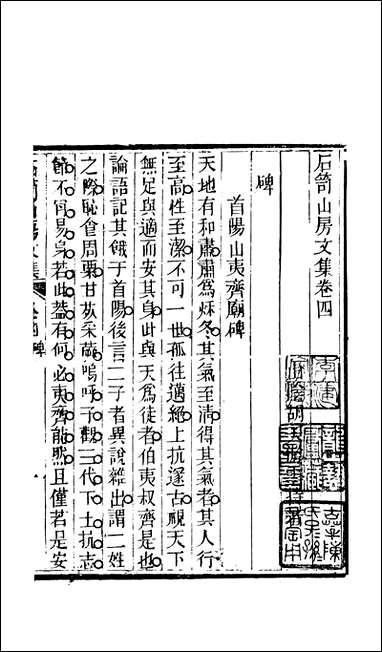 石笥山房文集卷四
胡天游
碑
首陽山夷齊廟碑
天地有和肅肅爲秌冬其氣至淸得其氣者其人行
至高性至潔不可一世孤往邁絕上抗邃古覗天下
無足與適而安其身此與天爲徒者伯夷叔齊是也
論語記其餓于首陽後言二子者異說雜出謂二姓
之際恥食周粟甘茹采薇嗚呼予觀三代下士抗志
節不苟易身若此葢有何必夷齊能照且僅若是安